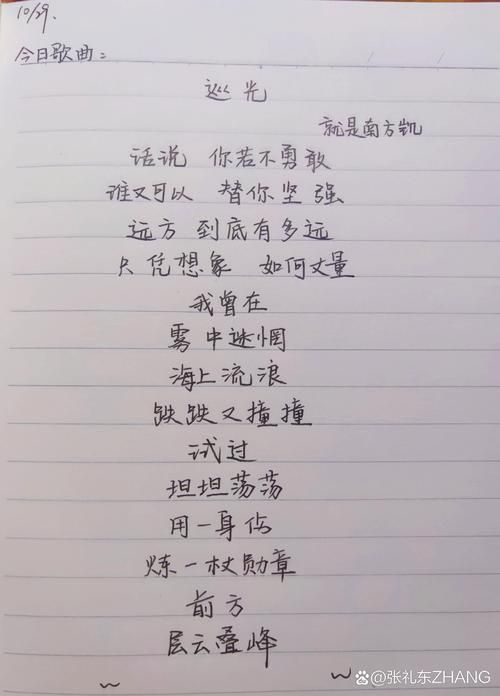 10/29.
今日歌曲：
巡光
就是南方凯
话说 你若不勇敢
谁又可以 替你坚强
远方 到底有多远
只凭想象 如何丈量
我曾在
雾中迷惘
海上流浪
跌跌又撞撞
试过
坦坦荡荡
用一身伤
炼一杖勋章
前方
层云叠峰
@张礼东ZHANG